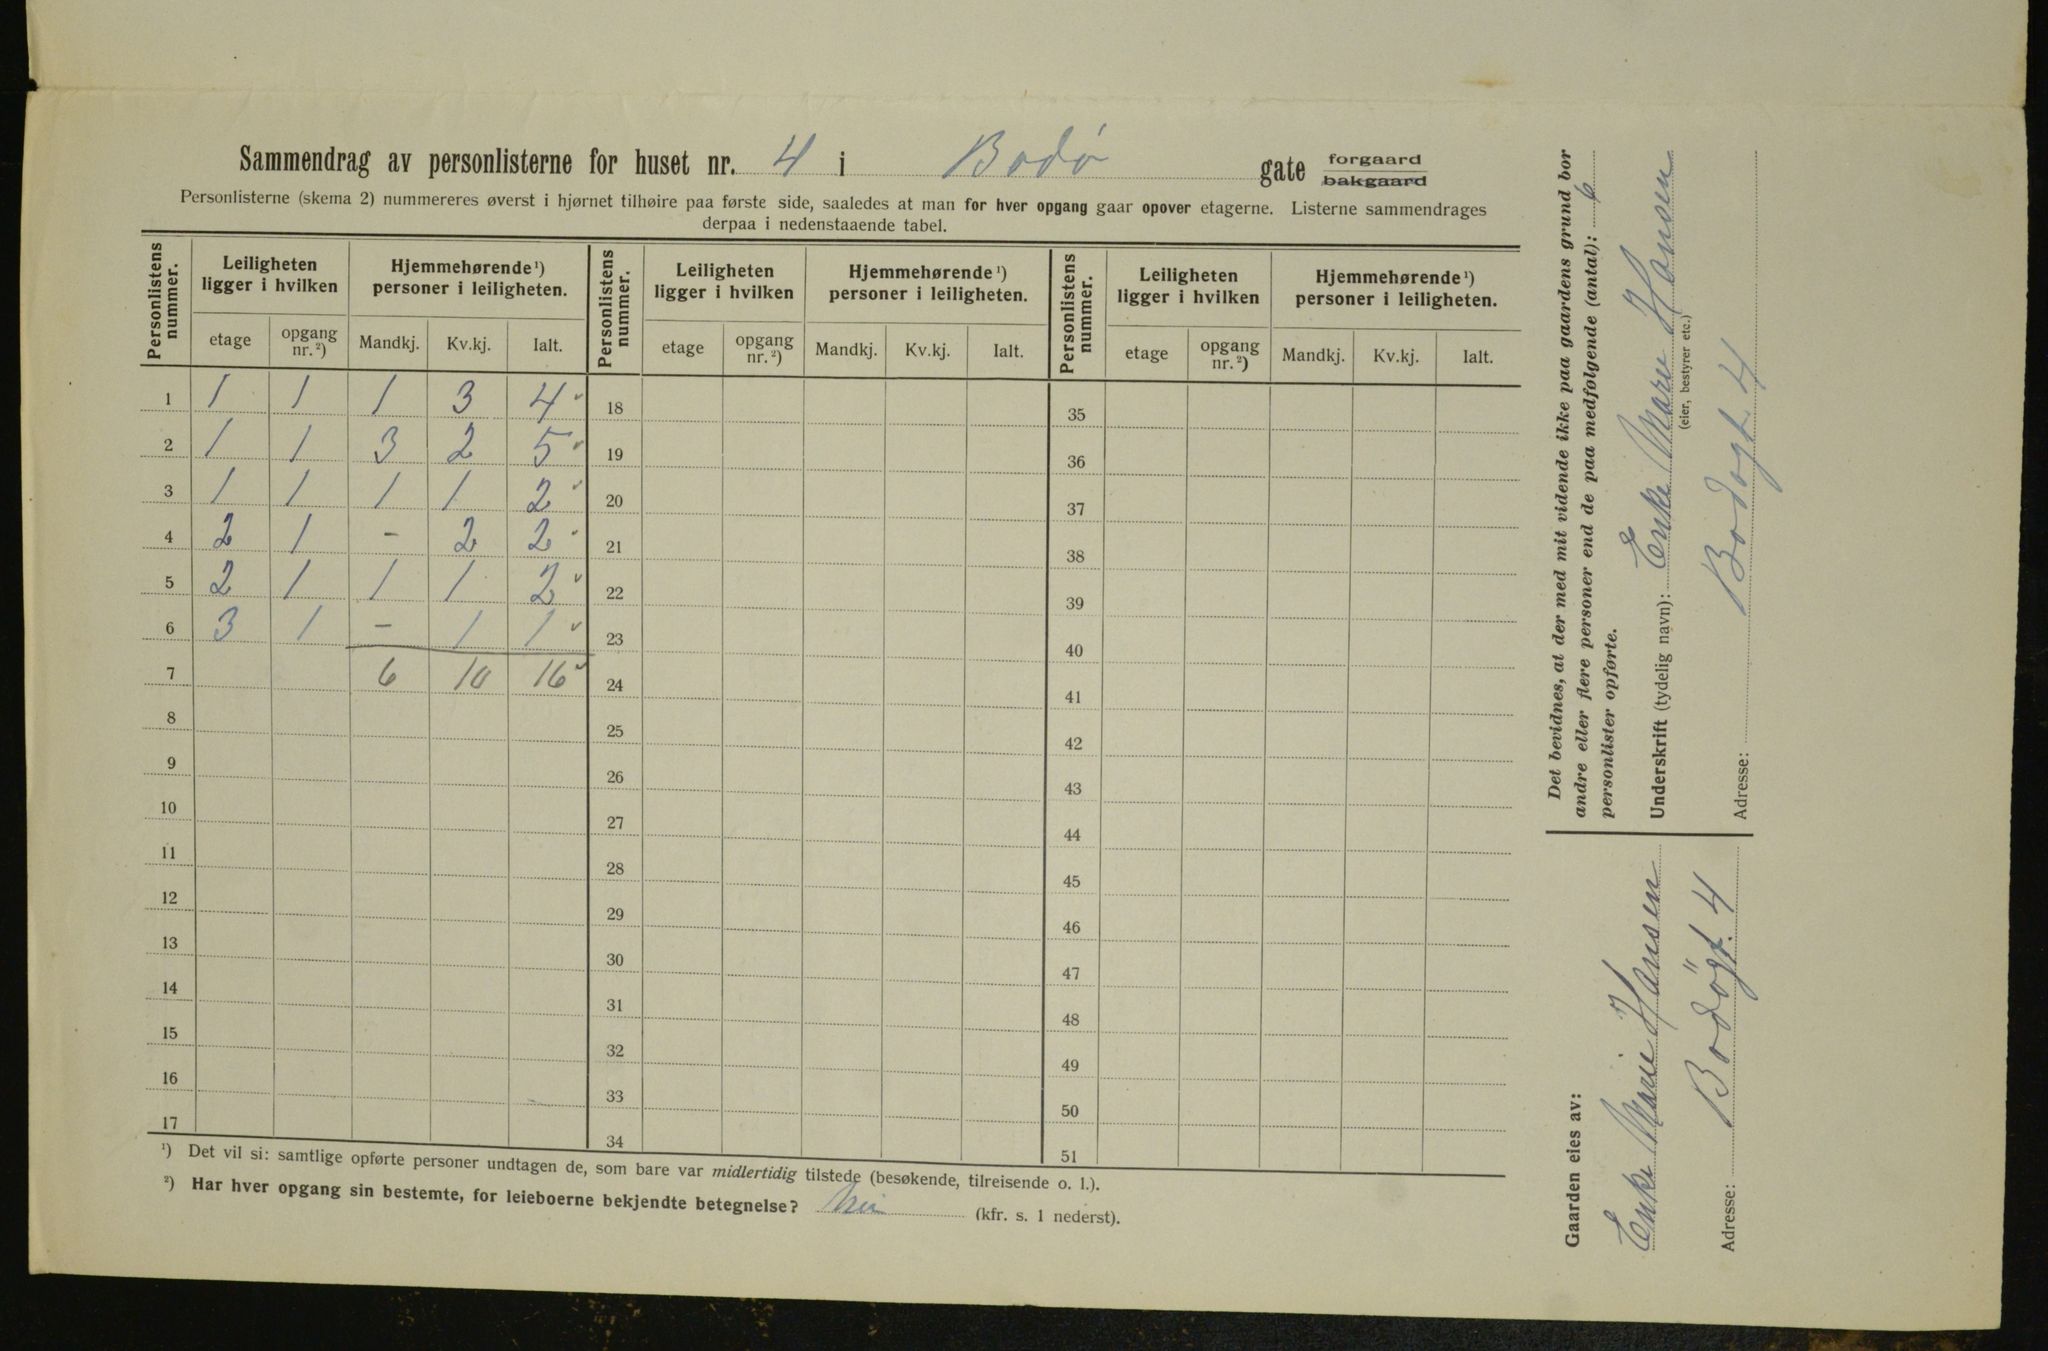 Sammendrag av personlisterne for huset nr. 4 i Bodø gate forgaard
bakgaard
Personlisterne (skema 2) nummereres øverst i hjørnet tilhøire paa første side, saaledes at man for hver opgang gaar opover etagerne. Listerne sammendrages
derpaa i nedenstaaende tabel.
Personlistens nummer. Leiligheten ligger i hvilken Hjemmehørende ¹) personer i leiligheten. Personlistens nummer. Leiligheten ligger i hvilken Hjemmehørende ¹) personer i leiligheten. Personlistens nummer. Leiligheten ligger i hvilken Hjemmehørende ¹) personer i leiligheten.
etage opgang nr. ²) Mandkj. Kv.kj. Ialt. etage opgang nr. ²) Mandkj. Kv.kj. Ialt. etage opgang nr. ²) Mandkj. Kv.kj. Ialt.
1 1 1 1 3 4 18 35
2 1 1 3 2 5 19 36
3 1 1 1 1 2 20 37
4 2 1 – 2 2 21 38
5 2 1 1 1 2 22 39
6 3 1 – 1 1 23 40
7 6 10 16 24 41
8 25 42
9 26 43
10 27 44
11 28 45
12 29 46
13 30 47
14 31 48
15 32 49
16 33 50
17 34 51
¹) Det vil si: samtlige opførte personer undtagen de, som bare var midlertidig tilstede (besøkende, tilreisende o. l.).
²) Har hver opgang sin bestemte, for leieboerne bekjendte betegnelse? Nei (kfr. s. 1 nederst).
Det bevidnes, at der med mit vidende ikke paa gaardens grund bor
andre eller flere personer end de paa medfølgende (antal): 6
personlister opførte.
Underskrift (tydelig navn): Enke Marie Hansen
(eier, bestyrer etc.)
Adresse: Bodogt. 4
Gaarden eies av:
Enke Marie Hansen
Adresse: Bodögt. 4